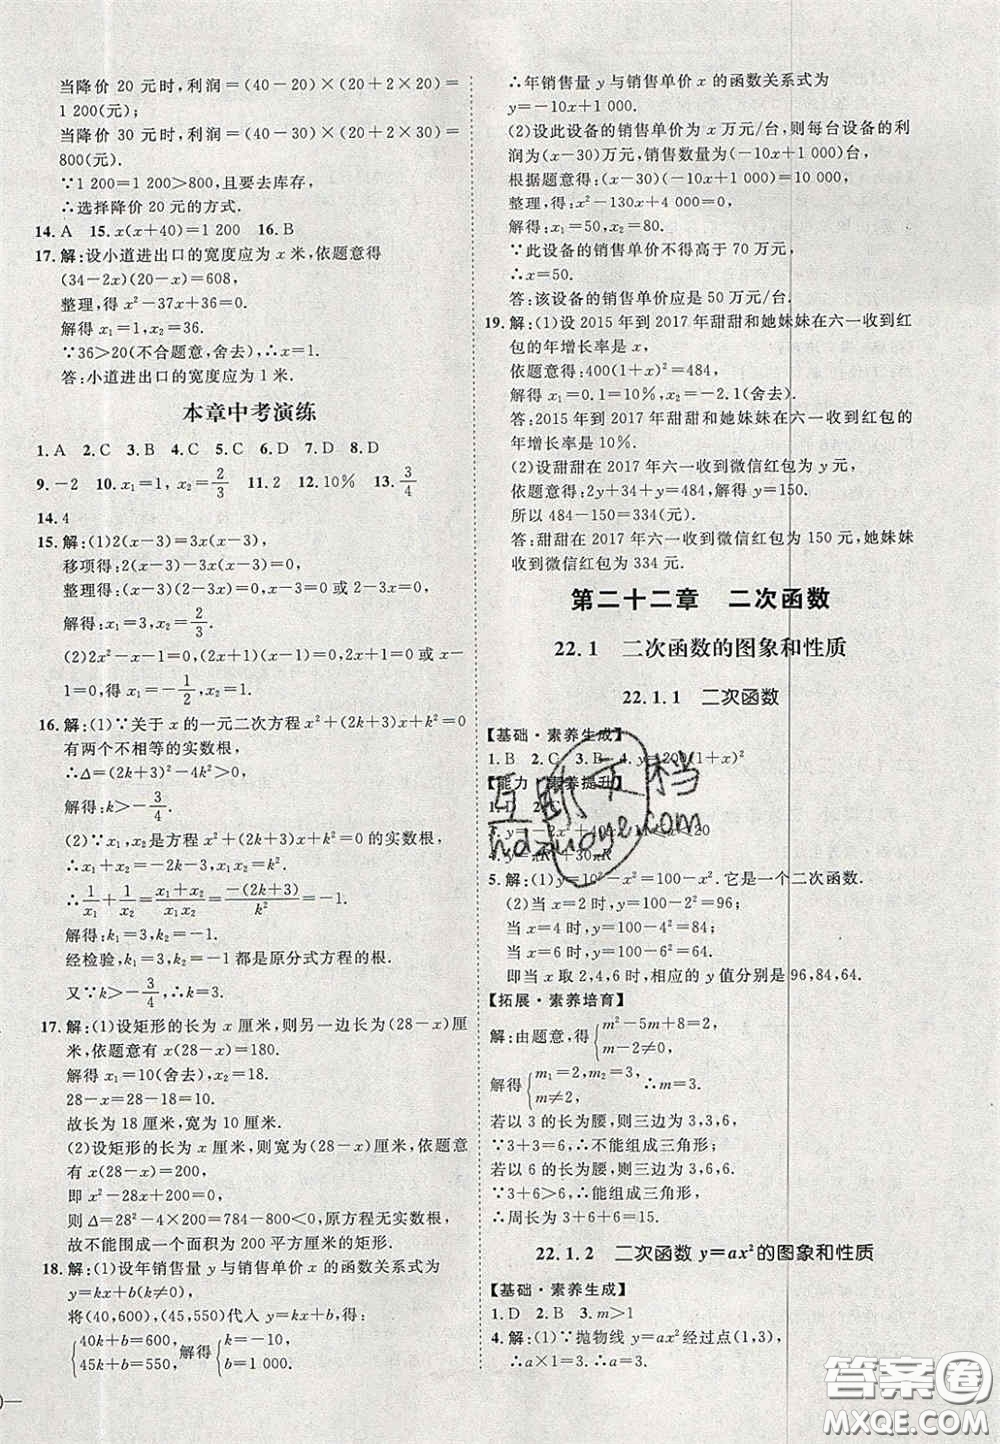 当降价 20 元时,利润=(40-20)×(20+2×20)=
1 200(元);
当降价 30 元时,利润=(40-30)×(20+2×30)=
800(元).
∵1 200=1 200>800,且要去库存,
∴选择降价 20 元的方式.
14. A 15. x(x+40)=1 200 16. B
17. 解:设小道进出口的宽度应为 x 米,依题意得
(34-2x)(20-x)=608,
整理,得 x²-37x+36=0.
解得 x₁=1,x₂=36.
∵36>20(不合题意,舍去),∴x=1.
答:小道进出口的宽度应为 1 米.
本章中考演练
1. A 2. C 3. B 4. C 5. C 6. D 7. D 8. D
9. -2 10. x₁=1, x₂=2/3 11. 2 12. 10% 13. 3/4
14. 4
15. 解:(1)2(x-3)=3x(x-3),
移项得:2(x-3)-3x(x-3)=0,
整理得:(x-3)(2-3x)=0,x-3=0 或 2-3x=0,
解得:x₁=3,x₂=2/3.
(2)2x²-x-1=0,(2x+1)(x-1)=0,2x+1=0 或
x-1=0,x₁=-1/2,x₂=1.
16. 解:(1)∵关于 x 的一元二次方程 x²+(2k+3)x+k²=0
有两个不相等的实数根,
∴Δ=(2k+3)²-4k²>0,
解得:k>-3/4.
(2)∵x₁,x₂是方程 x²+(2k+3)x+k²=0 的实数根,
∴x₁+x₂=-2k-3,x₁x₂=k²,
∴1/x₁+1/x₂=(x₁+x₂)/(x₁x₂)=-(2k+3)/k²=-1,
解得:k₁=3,k₂=-1.
经检验,k₁=3,k₂=-1 都是原分式方程的根.
又∵k>-3/4,∴k=3.
17. 解:(1)设矩形的长为 x 厘米,则另一边长为(28-x)厘
米,依题意有 x(28-x)=180.
解得 x₁=10(舍去),x₂=18.
28-x=28-18=10.
故长为 18 厘米,宽为 10 厘米.
(2)设矩形的长为 x 厘米,则宽为(28-x)厘米,依题意
有 x(28-x)=200,
即 x²-28x+200=0,
则 Δ=28²-4×200=784-800<0,原方程无实数根,
故不能围成一个面积为 200 平方厘米的矩形.
18. 解:(1)设年销售量 y 与销售单价 x 的函数关系式为
y=kx+b(k≠0),
将(40,600),(45,550)代入 y=kx+b,得
{40k+b=600, 45k+b=550, 解得{k=-10, b=1 000.
∴年销售量 y 与销售单价 x 的函数关系式为
y=-10x+1 000.
(2)设此设备的销售单价为 x 万元/台,则每台设备的利
润为(x-30)万元,销售数量为(-10x+1 000)台,
根据题意得:(x-30)(-10x+1 000)=10 000,
整理,得:x²-130x+4 000=0,
解得:x₁=50,x₂=80.
∵此设备的销售单价不得高于 70 万元,
∴x=50.
答:该设备的销售单价应是 50 万元/台.
19. 解:(1)设 2015 年到 2017 年甜甜和她妹妹在六一收到红
包的年增长率是 x,
依题意得:400(1+x)²=484,
解得 x₁=0.1=10%,x₂=-2.1(舍去).
答:2015 年到 2017 年甜甜和她妹妹在六一收到红包的
年增长率是 10%.
(2)设甜甜在 2017 年六一收到微信红包为 y 元,
依题意得:2y+34+y=484,解得 y=150.
所以 484-150=334(元).
答:甜甜在 2017 年六一收到微信红包为 150 元,她妹妹
收到微信红包为 334 元.
第二十二章 二次函数
22.1 二次函数的图象和性质
22.1.1 二次函数
【基础·素养生成】
1. B 2. C 3. B 4. y=200(1+x)²
【能力·素养提升】
5. 解:(1)y=10²-x²=100-x².它是一个二次函数.
(2)当 x=2 时,y=100-2²=96;
当 x=4 时,y=100-4²=84;
当 x=6 时,y=100-6²=64.
即当 x 取 2,4,6 时,相应的 y 值分别是 96,84,64.
【拓展·素养培育】
解:由题意,得{m²-5m+8=2, m-2≠0,
解得{m₁=2,m₂=3, m≠2. ∴m=3.
若以 3 的长为腰,则三边为 3,3,6.
∵3+3=6,∴不能组成三角形;
若以 6 的长为腰,则三边为 3,6,6.
∵3+6>6,∴能组成三角形,
∴周长为 3+6+6=15.
22.1.2 二次函数 y=ax²的图象和性质
【基础·素养生成】
1. D 2. B 3. m>1
4. 解:(1)∵抛物线 y=ax²经过点(1,3),
∴a×1=3,∴a=3.
互助文档
hdzuoye.com
答案圈
MXQE.COM